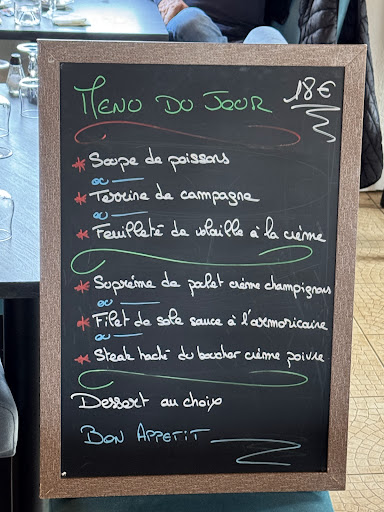 MENU DU JOUR 18€
* Soupe de poissons
ou
* Terrine de campagne
ou
* Feuilleté de volaille à la crème
* Suprème de palet crème champignons
ou
* Filet de sole sauce à l'armoricaine
ou
* Steak haché du boucher crème poivre
Dessert au choix
BON APPETIT